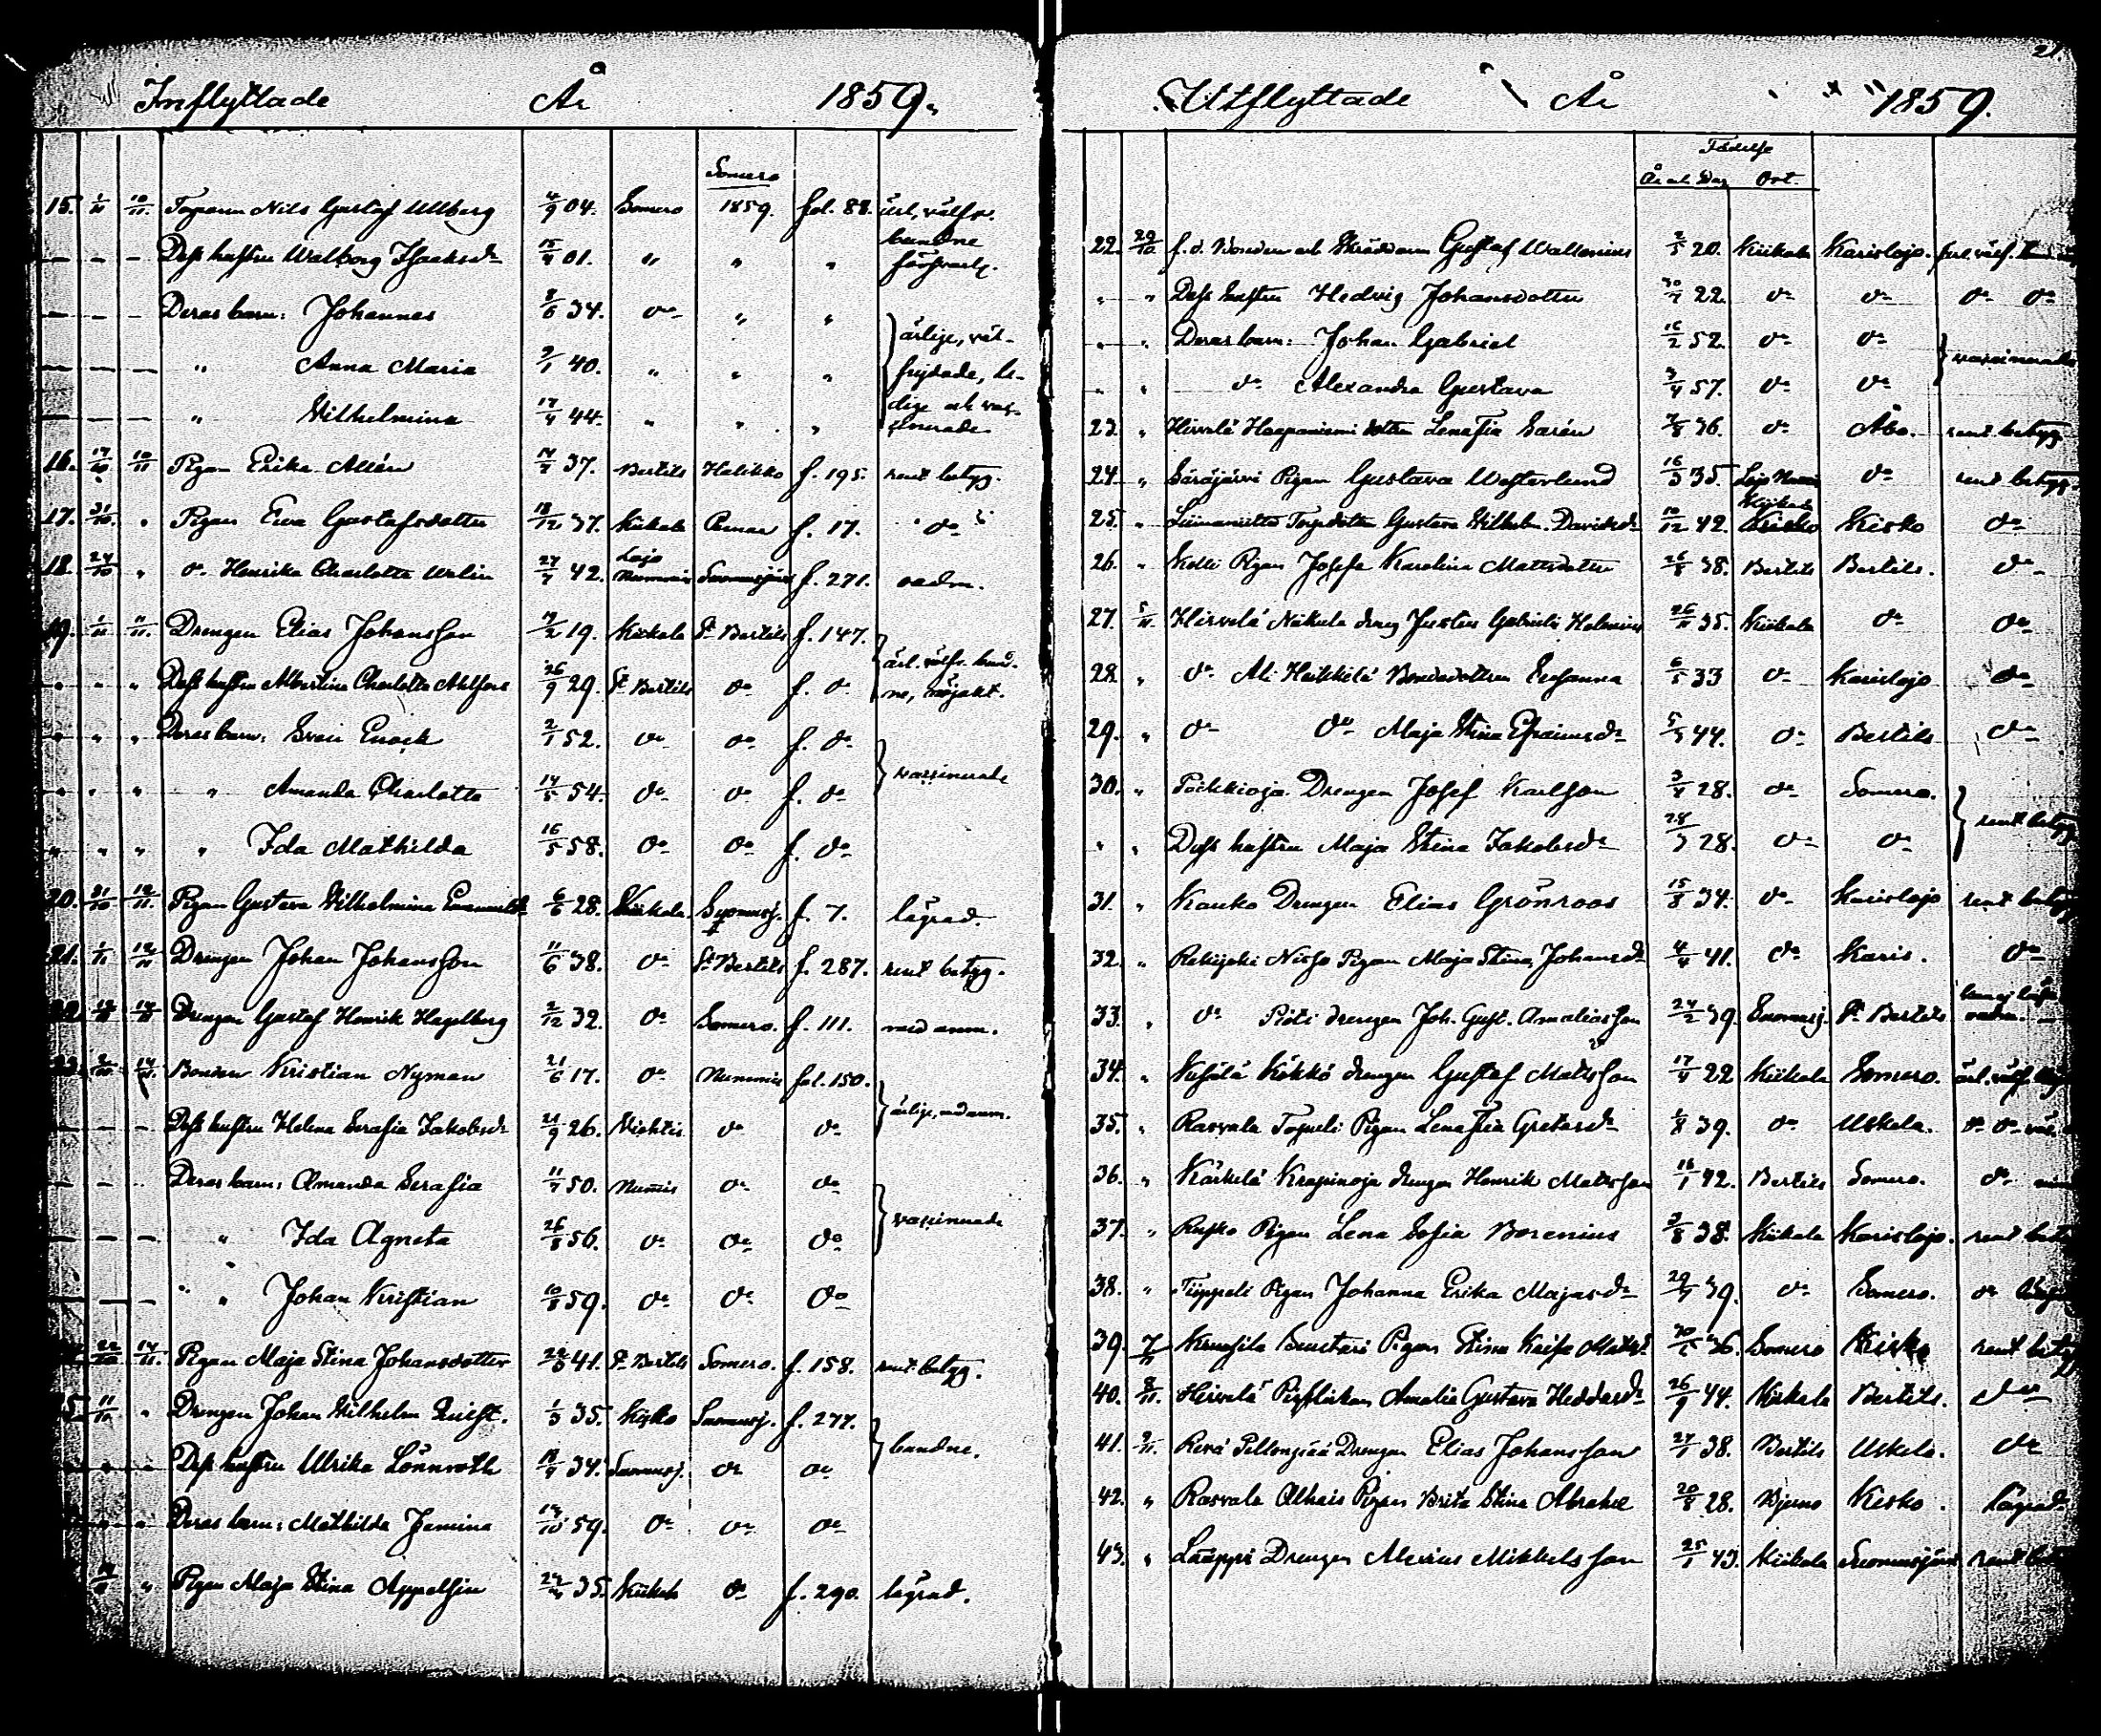 Inflyttade År 1859.
Somero
15. 10/11. Torparen Nils Gustaf Ullberg 4/9 04. Somero 1859. fol. 88. ärl, välfr.
bundne
— — — Dess hustru Walborg Isaksdr 15/4 01. " " " försvarl.
— — — Deras barn: Johannes 8/6 34. do " "
ärlige, väl-
— — — " Anna Maria 9/1 40. " " " frejdade, le-
dige och vac-
— — — " Wilhelmina 17/4 44. " " " cinerade
16. 17/10 10/11 Pigan Erika Allén 37. Bertils Halikko f. 195. rent betyg.
17. 31/10 " Pigan Eva Gustafsdotter 18/12 37. Kiikala Pemar f. 17. " do
Lojo
18. 24/10 " do Henrika Charlotta Walin 27/7 42. Nummis Suomusjärvi f. 271. oadm.
19. 1/11 11/11. Drengen Elias Johansson 19. Kiikala St Bertils f. 147.
ärl. välfr. bund-
" " " Dess hustru Albertina Charlotta Ahlfors 26/9 29. St Bertils do f. do ne, nöjakt.
" " " Deras barn: Sven Enock 2/1 52. do do f. do
vaccinerade
" " " " Amanda Charlotta 14/5 54. do do f. do
" " " " Ida Mathilda 16/5 58. do do f. do
20. 31/10 12/11. Pigan Gustava Wilhelmina Emanuelsdr 6/6 28. Kiikala Suomusj. f. 7. lägrad.
21. 1/11 12/11 Drengen Johan Johansson 11/6 38. do St Bertils f. 287. rent betyg.
22. Drengen Gustaf Henrik Hagelberg 2/12 32. do Somero. f. 111. med anm.
23. Bonden Kristian Nyman 21/6 17. do Nummis fol. 150.
ärlige, med anm.
— — — Dess hustru Helena Serafia Jakobsdr 21/9 26. Vichtis do do
— — Deras barn: Amanda Serafia 11/7 50. Numis do do
vaccinerade
— — — " Ida Agneta 26/8 56. do do do
— — — " " Johan Kristian 10/8 59. do do do
22/10 14/11. Pigan Maja Stina Johansdotter 41. St Bertils Somero. f. 158. rent betyg.
5. 11/11 " Drengen Johan Wilhelm Quist. 1/3 35. Kisko Suomusj. f. 277.
bundne.
" " " Dess hustru Ulrika Lönnroth 34. Suomusj. do do
" " Deras barn: Mathilda Jemina 14/10 59. do do do
" Pigan Maja Stina Appelsin 35. Kiikala do f. 290. lägrad.
21.
Utflyttade År 1859.
Födelse
År och Dag Ort.
22. 29/10 f. d. Bonden och Skräddaren Gustaf Wallenius 2/5 20. Kiikala Karislojo. ärl. välf.
" " Dess hustru Hedvig Johansdotter 30/7 22. do do do do
" " Deras barn: Johan Gabriel 16/2 52. do do
vaccinerade
" " do Alexandra Gustava 3/4 57. do do
23. " Hirvelä Haapaniemi dottren Lena Fia Sarén 7/8 36. do Åbo. rent betyg
24. " Särajärvi Pigan Gustava Westerlund 16/3 35. Lojo Nummis do rent betyg.
Kiikala
25. " Liimanitto Torpdottren Gustava Wilhelm. Davidsdr 10/12 42. Kisko Kisko do
26. " Kolli Pigan Josefa Karolina Mattsdotter 26/8 38. Bertils Bertils. do
27. 5/11. Hirvelä Nikula dreng Justus Gabriels Holmius 26/11 35. Kiikala do do
28. " do Ali Heikkilä Bondedottren Eufanna 6/5 33 do Karislojo do
29. " do do Maja Stina Efraimsdr 44. do Bertils do
30. " Pöikkioja Drengen Josef Karlsson 28. do Somero.
rent betyg
" " Dess hustru Maja Stina Jakobsdr 28/3 28. do do
31. " Kauko Drengen Elias Grönroos 15/8 34. do Karislojo rent betyg
32. " Rekijoki Pigan Maja Stina Johansdr 4/4 41. do Karis. do
33. " do drengen Joh. Gust. Amaliasson 24/2 39. Suomusj. St Bertils
34. " Kökkö drengen Gustaf Mattsson 17/4 22 Kiikala Somero. ärl. välf.
35. " Rasvala Topeli Pigan Lena Fia Gretasdr 39. do Uskela. do do
36. " Kärkelä Krapinoja drengen Henrik Mattsson 42. Bertils Somero. do
37. " Pigan Lena Sofia Borenius 38. Kiikala Karislojo. rent betyg
38. " Tiippeli Pigan Johanna Erika Majasdr 39. do Somero. do
39. 7/11 Pigan Stina Kaisa Mattsdr 36. Somero Kisko rent betyg
40. 8/11. Hirvelä Amalia Gustava Heddasdr 26/9 44. Kiikala Bertils. do
41. 9/11. Drengen Elias Johansson 38. Bertils Uskela. do
42. " Rasvala Alhais Pigan Brita Stina 20/8 28. Bjerno Kisko. lägrad.
43. " Lauppi Drengen Mikkelsson 25/1 43. Kiikala Suomusjärvi rent